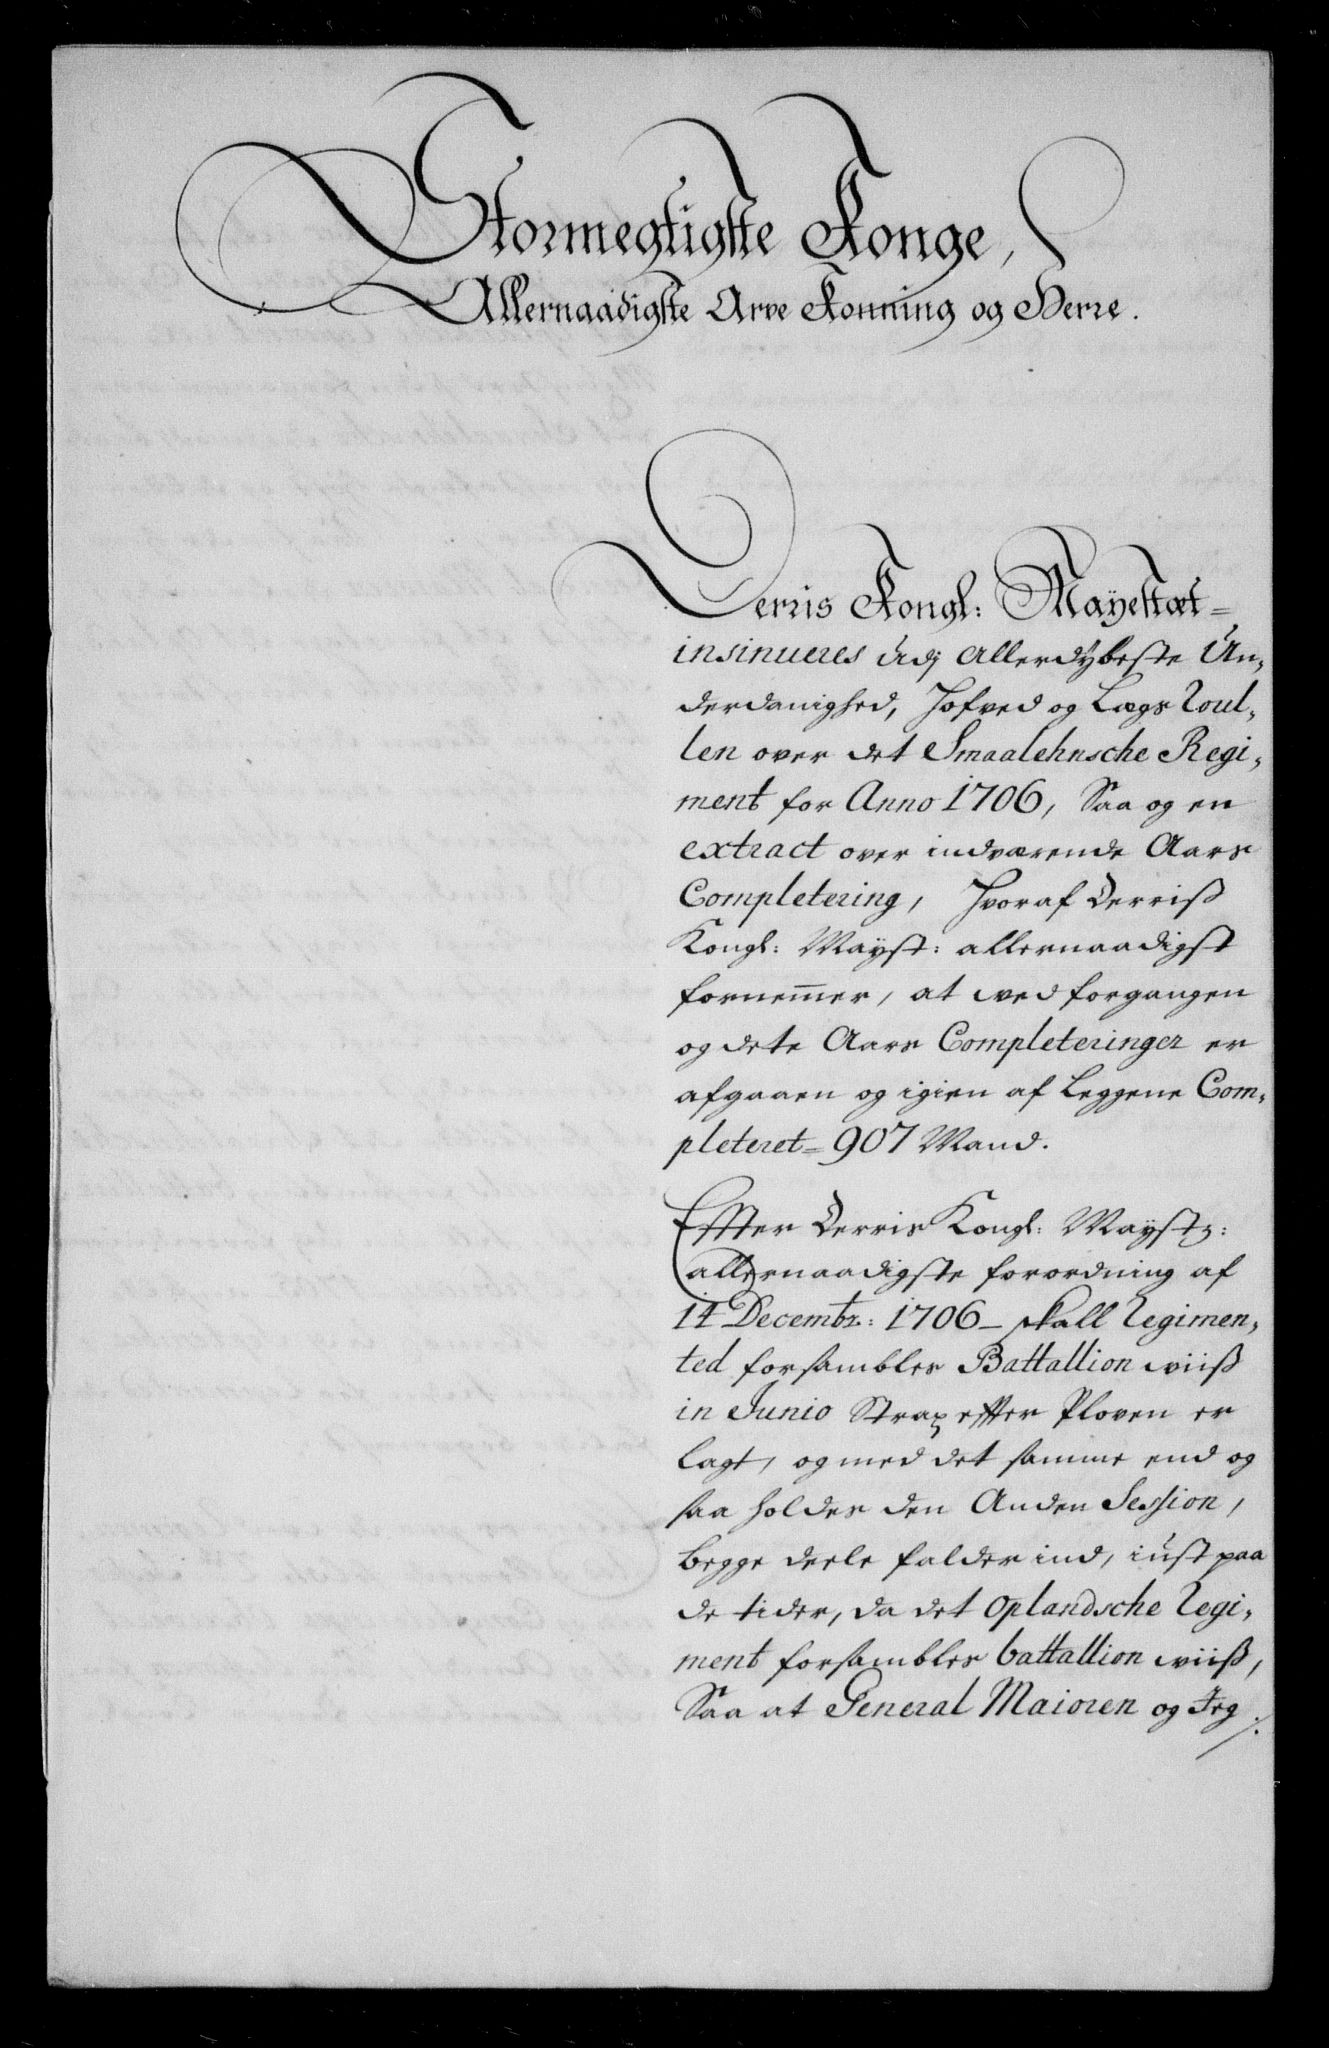 Stormegtigste Konge,
Allernaadigste Arve Konning og Herre.
Derris Kongl: Mayestæt=
insinueres udj allerdybeste Un,
derdanighed, Hofved og Lægs Roul,
len over det Smaalehnsche Regi,
ment for Anno 1706, Saa og en
extract over indværende Aars
Completering, Hvoraf Derriß
Kongl: Mayst: allernaadigst
fornemer, at ved forgangen
og dete Aars Completeringer er
afgaaen og igien af Leggene Com,
pleteret= 907 Mand.
Effter Derris Kongl: Maystz:
allernaadigste forordning af
14 Decembr: 1706 – skall Regimen,
ted forsambles Battallion wiiß
in Junio Strax effter Ploven er
lagt, og med det samme end og
saa holdes den Anden Session,
begge deele falder ind, iust paa
de tider, da det Oplandsche Regi,
ment forsambles battallion wiiß,
Saa at General Maioren og Jeg ./.